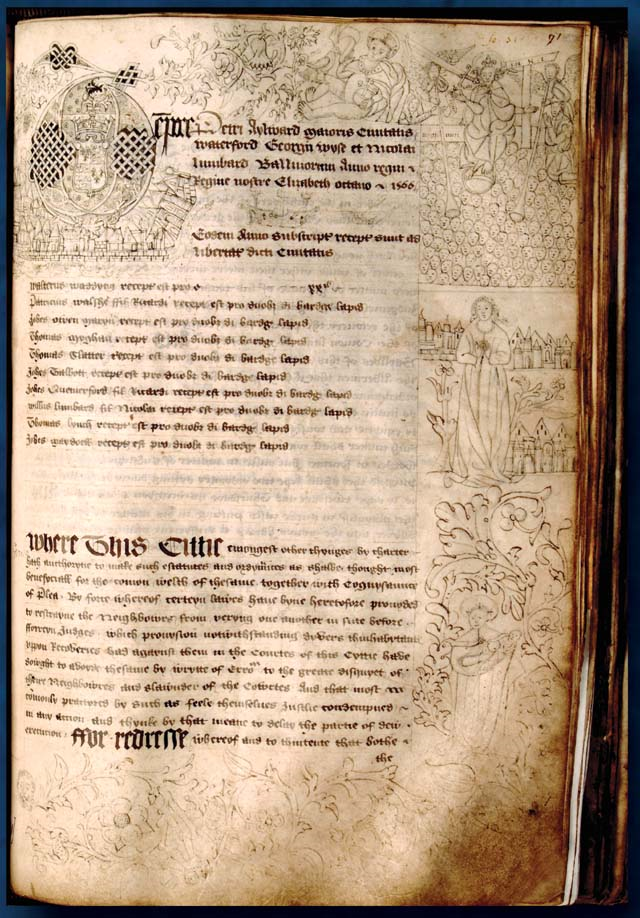 71
Tempore Petri Aylward maioris Civitatis
waterford Georgii wyse et Nicolai
Lumbard Ballivorum Anno regni
Regine nostre Elizabeth octavo 1566
Eodem Anno subscript recept sunt ad
libertat dicti Civitatis
walterus recept est pro xx
Patricius walshe fil Ricardi recept est pro duobz di bardg lapid
Johes recept est pro duobz di bardg lapid
Thomas recept est pro duobz di bardg lapid
Thomas Slatter recept est pro duobz di bardg lapid
Johes Talbott recept est pro duobz di bardg lapid
Johes Quemerford fil Ricardi recept est pro duobz di bardg lapid
willms lumbard fil Nicolai recept est pro duobz di bardg lapid
Thomas lynch recept est pro duobz di bardg lapid
Johes recept est pro duobz di bardg lapid
where This Cittie emongest other thinges by charter
hath aucthorytie to make such estatutes and ordynances as shalbe thought most
beneficiall for the comon welth of thesame together with Cognysaunce
of Plea. By force whereof certeyn lawes have byne heretofore provided
to restrayne the Neighboures from vexyng one another in sute before
forreyn Judges, which provysion notwithstanding dyvers thinhabytants
uppon Recoveries had against them in the Courtes of this Cyttie have
sought to avoyde thesame by wrytte of Erro to the greate disquyet of
theire Neighboures and slaunder of the Courtes And that most
comonly practized by such as feele themselves Justlie condempned
in any action and thynke by that meane to delay the partie of dew
execution. ffor redresse whereof and to thintente that bothe
the